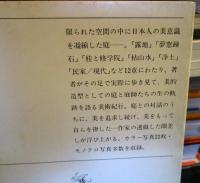 限られた空間の中に日本人の美意識
を凝縮した庭――。「露地」「夢窓疎
石」「桂と修学院」「枯山水」「浄土」
「民家／現代」など12章にわたり、著
者がその足で実際に歩き見て、美的
造型としての庭と庭師たちの生の軌
跡を語る美術紀行。庭との対話のう
ちに、美を追求し続け、美をもって
自らを律した一作家の透徹した眼差
しが浮び上がる。カラー写真22枚・
モノクロ写真多数を収録。